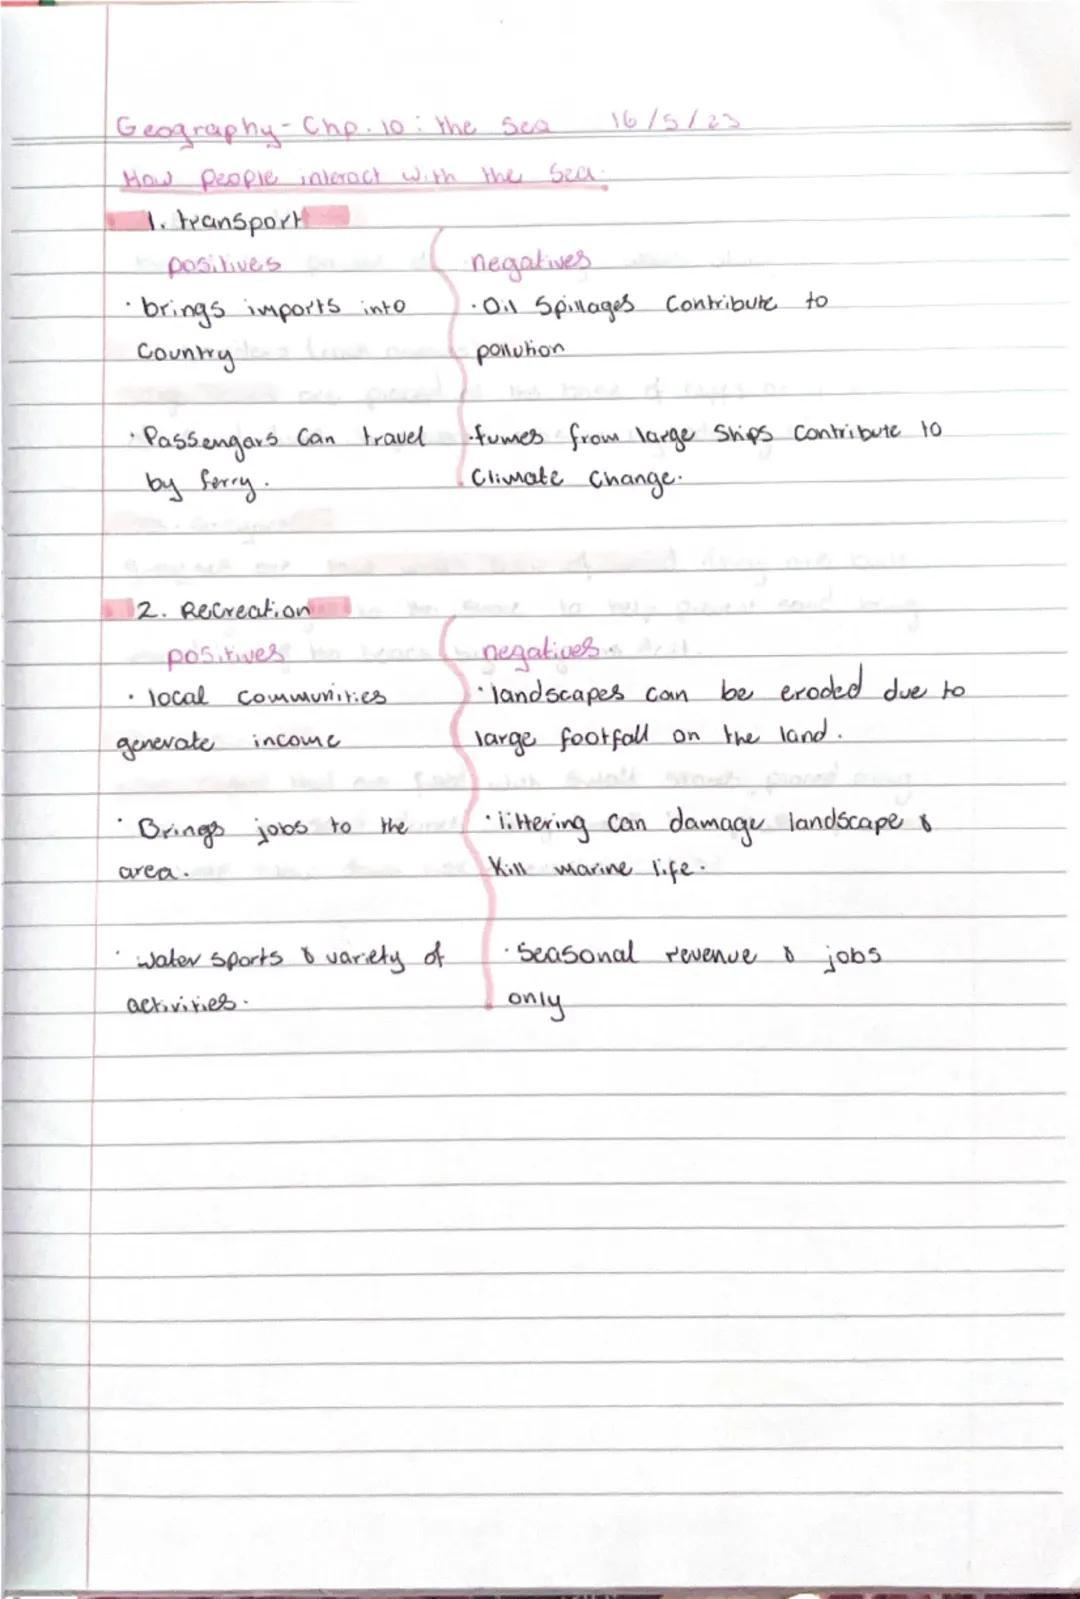 Geography - Chp. 10 : the Sea 16/5/23
How people interact with the Sea.
1. transport
positives negatives
· brings imports into · Oil Spillages Contribute to
Country pollution
· Passengars Can travel · fumes from large Ships Contribute to
by ferry. Climate Change.
2. Recreation
positives negatives
· local communities · landscapes can be eroded due to
generate income large footfall on the land.
· Brings jobs to the · littering can damage landscape &
area. Kill marine life.
· water sports & variety of · Seasonal revenue & jobs
activities. only